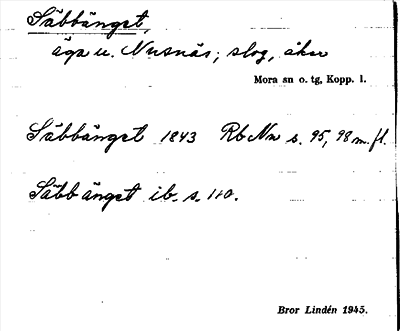 Säbbänget,
äga u. Nusnäs; slog, åker
Mora sn o. tg, Kopp. l.
Säbbänget 1843 RbNn s. 95, 98 m. fl.
Säbb änget ib. s. 110.
Bror Lindén 1945.